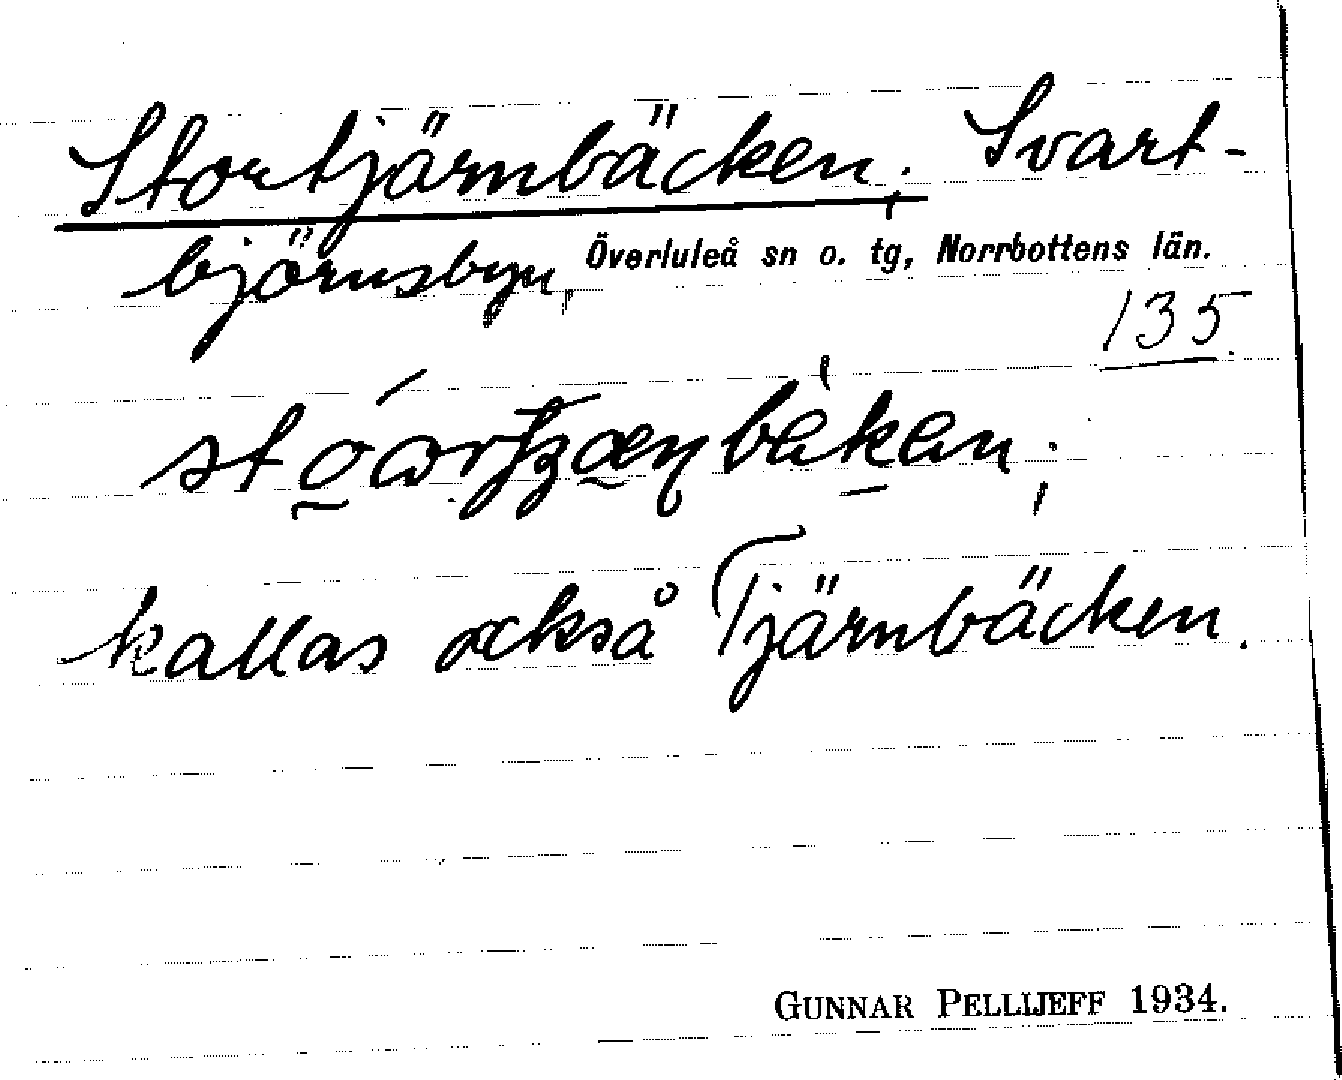 Stortjärnbäcken; Svart-
björnsbyn, Överluleå sn o. tg, Norrbottens län.
135.
kallas också Tjärnbäcken.
GUNNAR PELLIJEFF 1934.